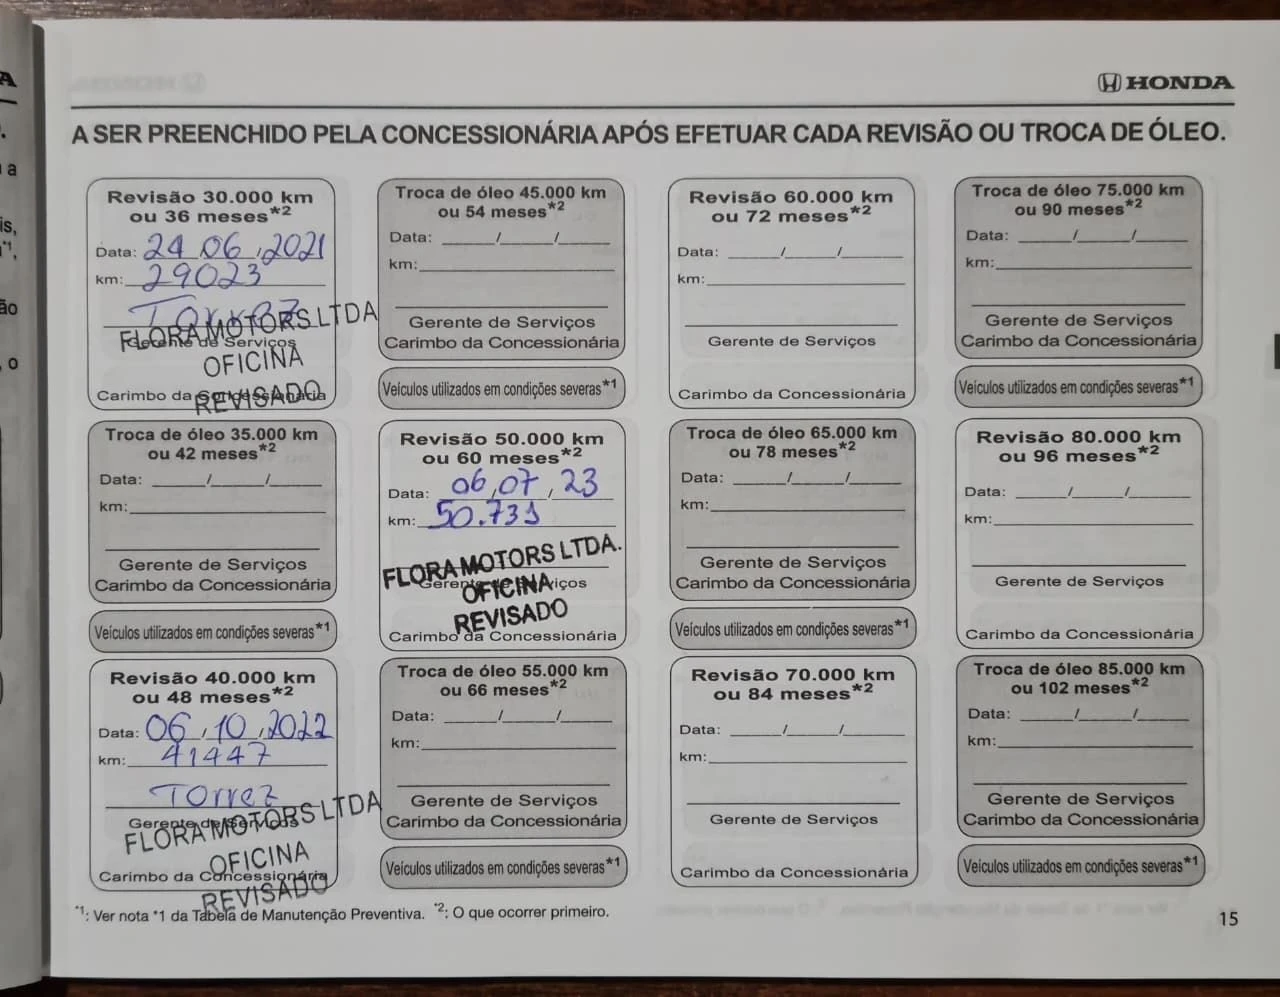 HONDA
A SER PREENCHIDO PELA CONCESSIONÁRIA APÓS EFETUAR CADA REVISÃO OU TROCA DE ÓLEO.
Revisão 30.000 km
ou 36 meses*2
Data: 24 06, 2021
km: 29023
Torrez
Gerente de Serviços
FLORA MOTORS LTDA
OFICINA
REVISADO
Carimbo da Concessionária
Troca de óleo 35.000 km
ou 42 meses*2
Data: ______/_____/_____
km:
Gerente de Serviços
Carimbo da Concessionária
Veículos utilizados em condições severas*1
Revisão 40.000 km
ou 48 meses*2
Data: 06, 10, 2022
km: 41447
Torrez
Gerente de Serviços
FLORA MOTORS LTDA
OFICINA
Carimbo da Concessionária
REVISADO
Troca de óleo 45.000 km
ou 54 meses*2
Data: ______/_____/_____
km:
Gerente de Serviços
Carimbo da Concessionária
Veículos utilizados em condições severas*1
Revisão 50.000 km
ou 60 meses*2
Data: 06, 07, 23
km: 50.731
FLORA MOTORS LTDA.
Gerente de Serviços
OFICINA
REVISADO
Carimbo da Concessionária
Troca de óleo 55.000 km
ou 66 meses*2
Data: ______/_____/_____
km:
Gerente de Serviços
Carimbo da Concessionária
Veículos utilizados em condições severas*1
Revisão 60.000 km
ou 72 meses*2
Data: ______/_____/_____
km:
Gerente de Serviços
Carimbo da Concessionária
Troca de óleo 65.000 km
ou 78 meses*2
Data: ______/_____/_____
km:
Gerente de Serviços
Carimbo da Concessionária
Veículos utilizados em condições severas*1
Revisão 70.000 km
ou 84 meses*2
Data: ______/_____/_____
km:
Gerente de Serviços
Carimbo da Concessionária
Troca de óleo 75.000 km
ou 90 meses*2
Data: ______/_____/_____
km:
Gerente de Serviços
Carimbo da Concessionária
Veículos utilizados em condições severas*1
Revisão 80.000 km
ou 96 meses*2
Data: ______/_____/_____
km:
Gerente de Serviços
Carimbo da Concessionária
Troca de óleo 85.000 km
ou 102 meses*2
Data: ______/_____/_____
km:
Gerente de Serviços
Carimbo da Concessionária
Veículos utilizados em condições severas*1
*1: Ver nota *1 da Tabela de Manutenção Preventiva. *2: O que ocorrer primeiro.
15